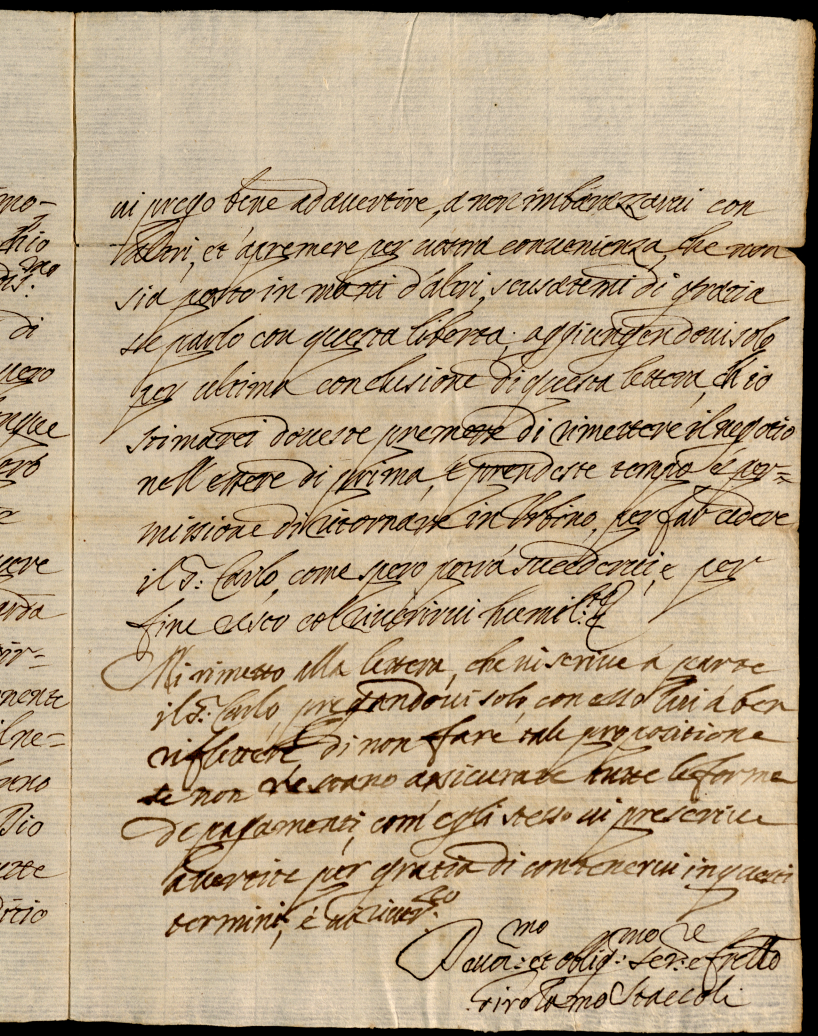 mo-
chio
di
vero
ui prego bene ad auertire, a non imbarazzarui con
altri, et à premere per uostra conuenienza, che non
sia posto in mani d'altri, scusatemi di gratia
se parlo con questa liberta; aggiungendoui solo
per ultima conclusione di questa lettera, ch'io
stimarei doueste premere di rimettere il negotio
nell'essere di prima, e prendeste tempo, e per=
missione di ritornare in Urbino, per far cedere
il S.r Carlo, come spero potrà succederui, e per
fine resto col riuerirui humil.te
Mi rimetto alla lettera, che ui scriue à parte
il S.r Carlo, pregandoui solo, con esso lui à ben
riflettere di non fare tale propositione
se non restano assicurate tutte le forme
de pagamenti, com'egli stesso ui prescriue
auertite per gratia di contenerui in questi
termini, è ui riuer.co
Deuot.mo et oblig.mo Ser.re e frello
Girolamo Staccoli